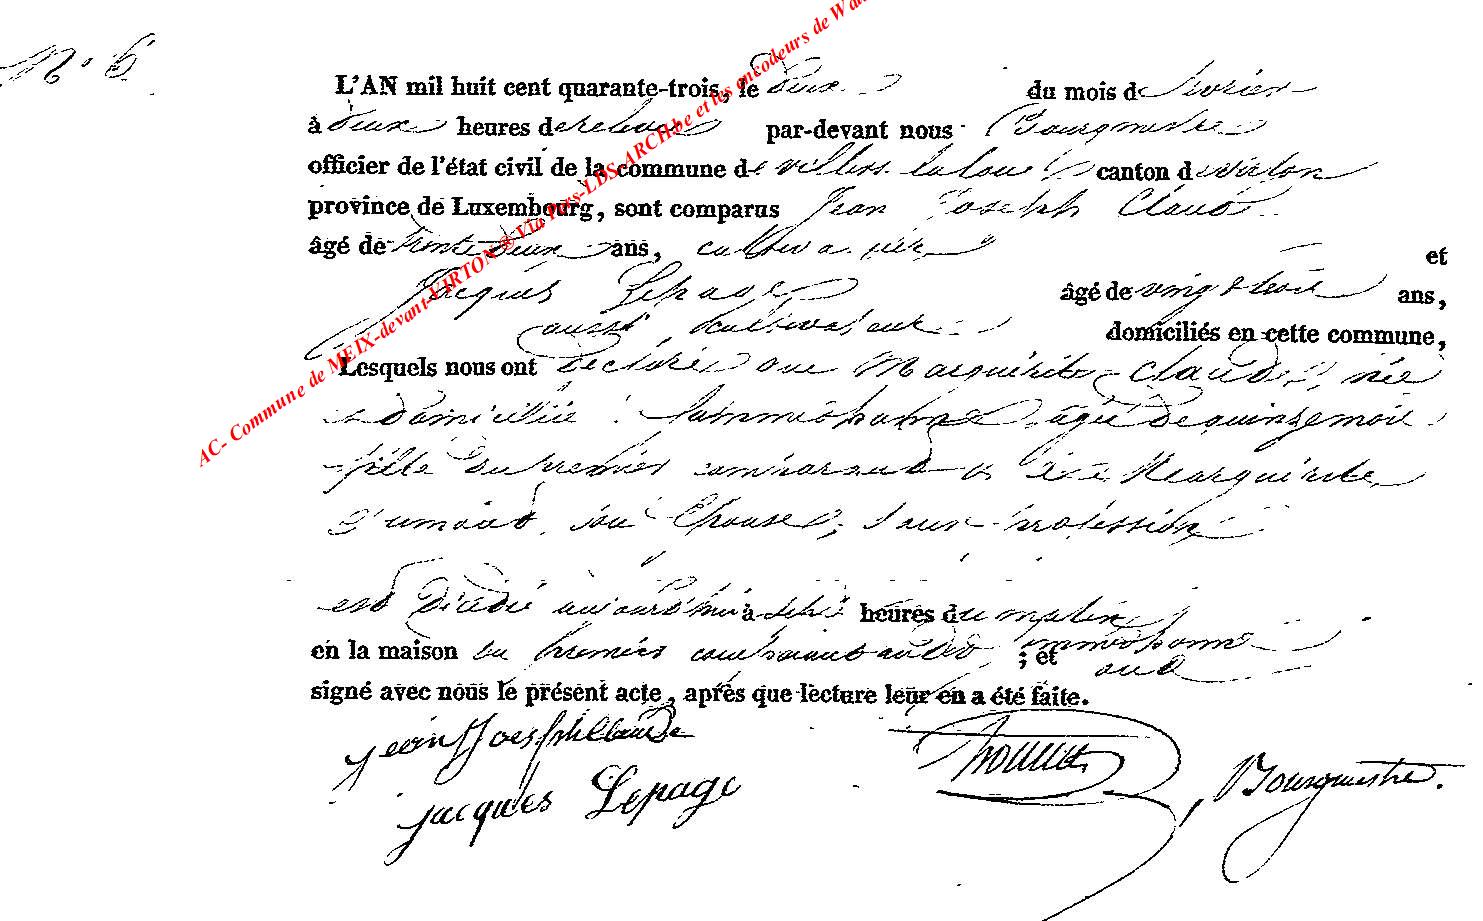 N° 6
L'AN mil huit cent quarante-trois, le deux du mois de fevrier
à deux heures de relevée par-devant nous Bourgmestre
officier de l'état civil de la commune de villers la loue canton de virton
province de Luxembourg, sont comparus Jean Joseph Claude
âgé de trente deux ans, cultivateur et
Jacques Lepage âgé de vingt trois ans,
aussi cultivateur domiciliés en cette commune,
Lesquels nous ont declaré que Marguerite Claude, née
et domiciliée à âgée de quinze mois
fille du premier comparant et de Marguerite
son Epouse, sans profession
est décédé aujourd'hui à sept heures du matin
en la maison du premier comparant audit ; et ont
signé avec nous le présent acte, après que lecture leur en a été faite.
jean joseph Claude
jacques Lepage
, Bourgmestre.
AC- Commune de MEIX-devant-VIRTON ® Via Pars-LDS-ARCH.be et les encodeurs de